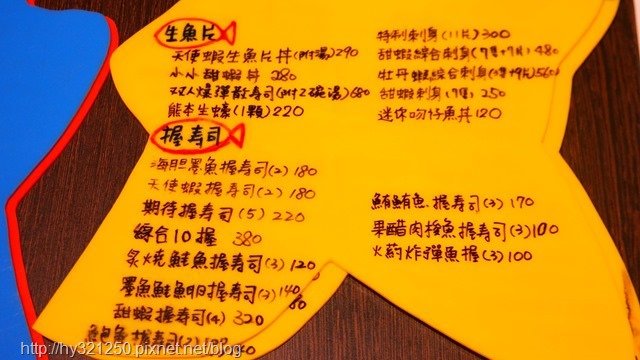 生魚片
天使蝦生魚片丼(附湯)290
小小甜蝦丼 280
双人爆彈散壽司(附2碗湯)680
熊本生蠔(1顆)220
特制刺身(11片)300
甜蝦綜合刺身(7隻+7片)480
牡丹蝦綜合刺身 560
甜蝦刺身(7隻)250
迷你吻仔魚丼120
握寿司
海胆墨魚握寿司(2)180
天使蝦握寿司(2)180
期待握寿司(5)220
綜合10握 380
炙燒鮭魚握寿司(3)120
墨魚鮭魚卵握寿司(2)140
甜蝦握寿司(4)320
鮪鮪魚握寿司(3)170
果醋肉魚握寿司(3)100
火葯炸彈魚握(3)100
http://hy321250.pixnet.net/blog